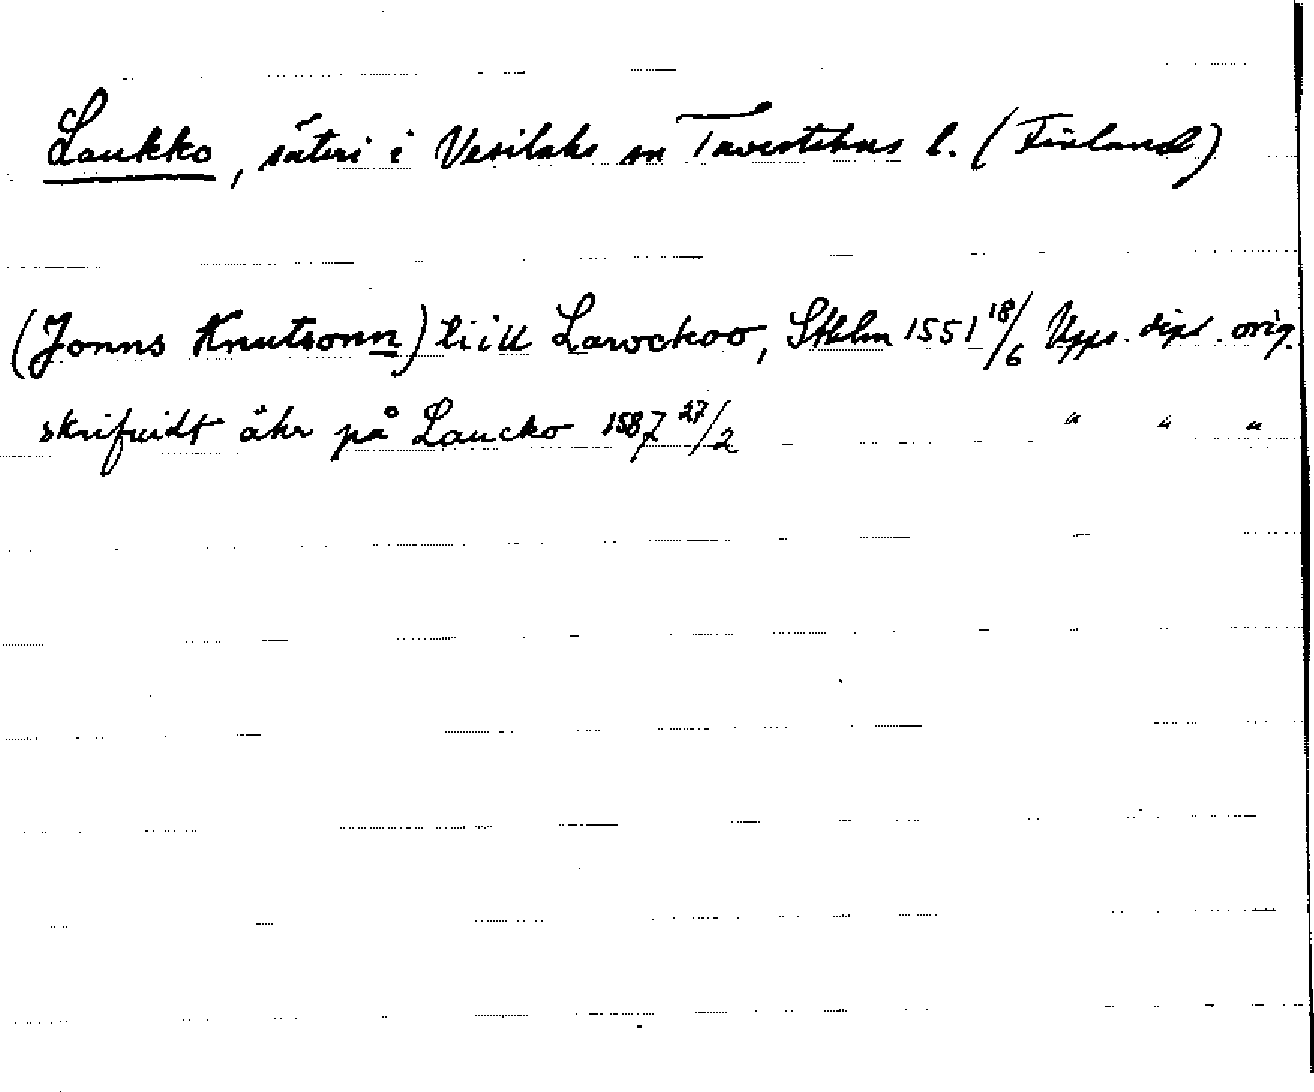 Laukko, säteri i Vesilaks sn Tavestehus l. (Finland)
(Jonns Knutsonn) tiill Lawckoo, Sthlm 1551 18/6 Upps. dipl. orig.
skrifuidt ähr på Laucko 1587 27/2 " " "